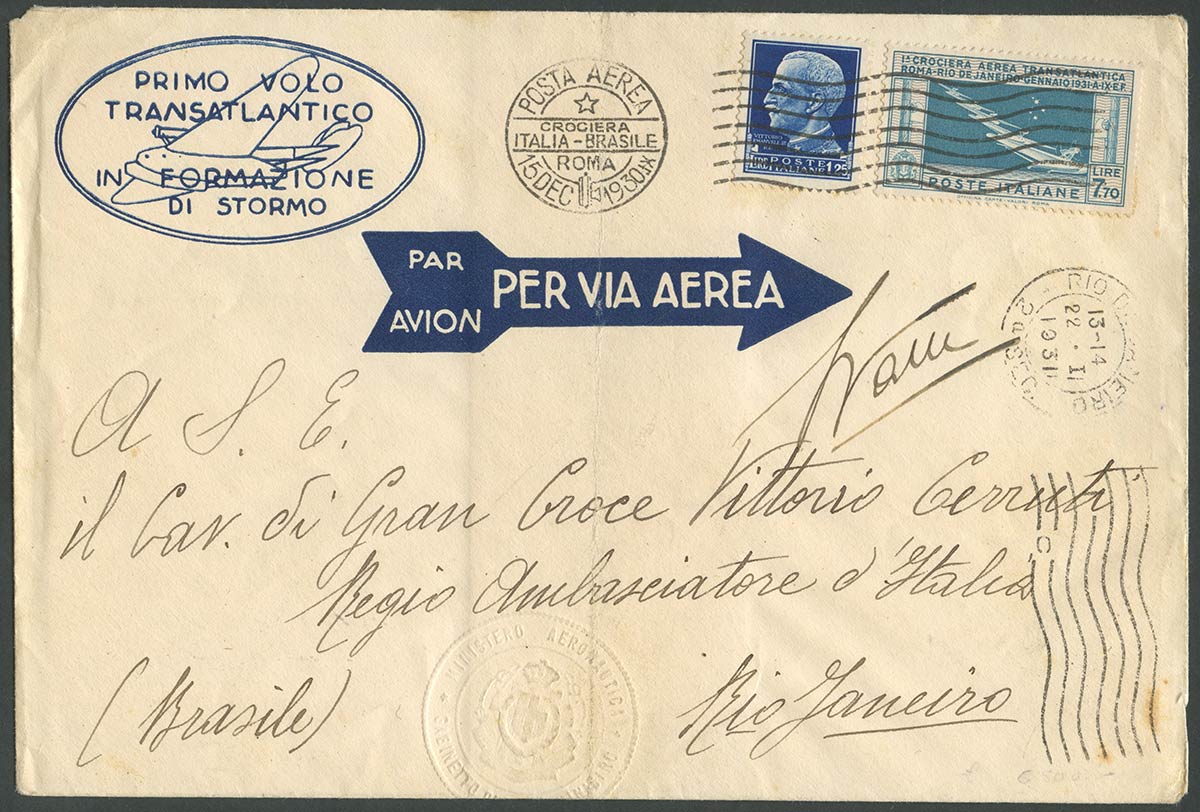 PRIMO VOLO
TRANSATLANTICO
IN FORMAZIONE
DI STORMO
POSTA AEREA
CROCIERA
ITALIA-BRASILE
ROMA
15 DEC 1930 IX
VITTORIO
LIRE POSTE 1,25
ITALIANE
1ª CROCIERA AEREA TRANSATLANTICA
ROMA-RIO DE JANEIRO-GENNAIO 1931-A.IX-E.F.
LIRE
7,70
POSTE ITALIANE
OFFICINA CARTE-VALORI ROMA
PAR
AVION
PER VIA AEREA
RIO D JANEIRO
13-14
22 . I
1931
A S. E.
il Cav. di Gran Croce Vittorio Cerruti
Regio Ambasciatore d'Italia
(Brasile)
Rio Janeiro
MINISTERO AERONAUTICA
GABINETTO